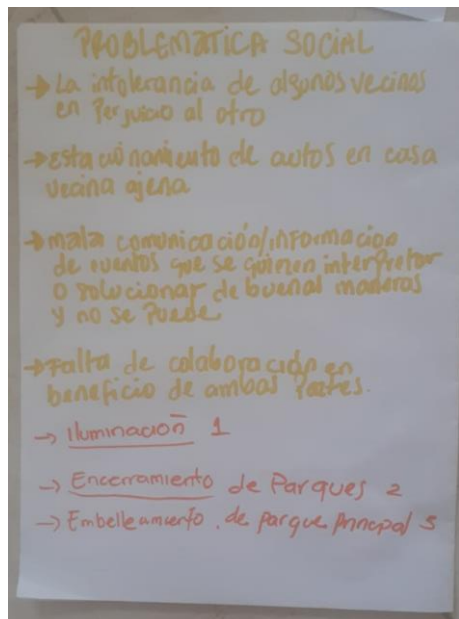 PROBLEMATICA SOCIAL
→ La intolerancia de algunos vecinos
en Perjuicio al otro
→ Estacionamiento de autos en casa
vecina ajena
→ mala comunicación/información
de eventos que se quieren interpretar
o solucionar de buenal maderas
y no se Puede.
→ Falta de colaboración en
beneficio de ambas Partes.
→ Iluminación 1
→ Encerramiento de Parques 2
→ Embelleamiento de parque Principal 3